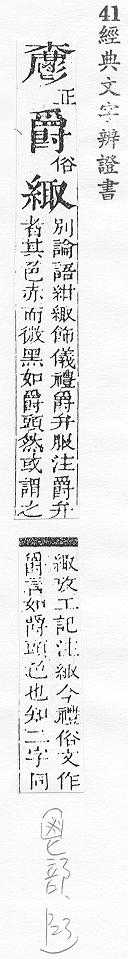 41經典文字辨證書
爵 正
爵 俗
緅
別論語紺緅飾儀禮爵弁服注爵弁
者其色赤而微黑如爵頭然或謂之
緅攷工記注緅今禮俗文作
爵言如爵頭色也知二字同